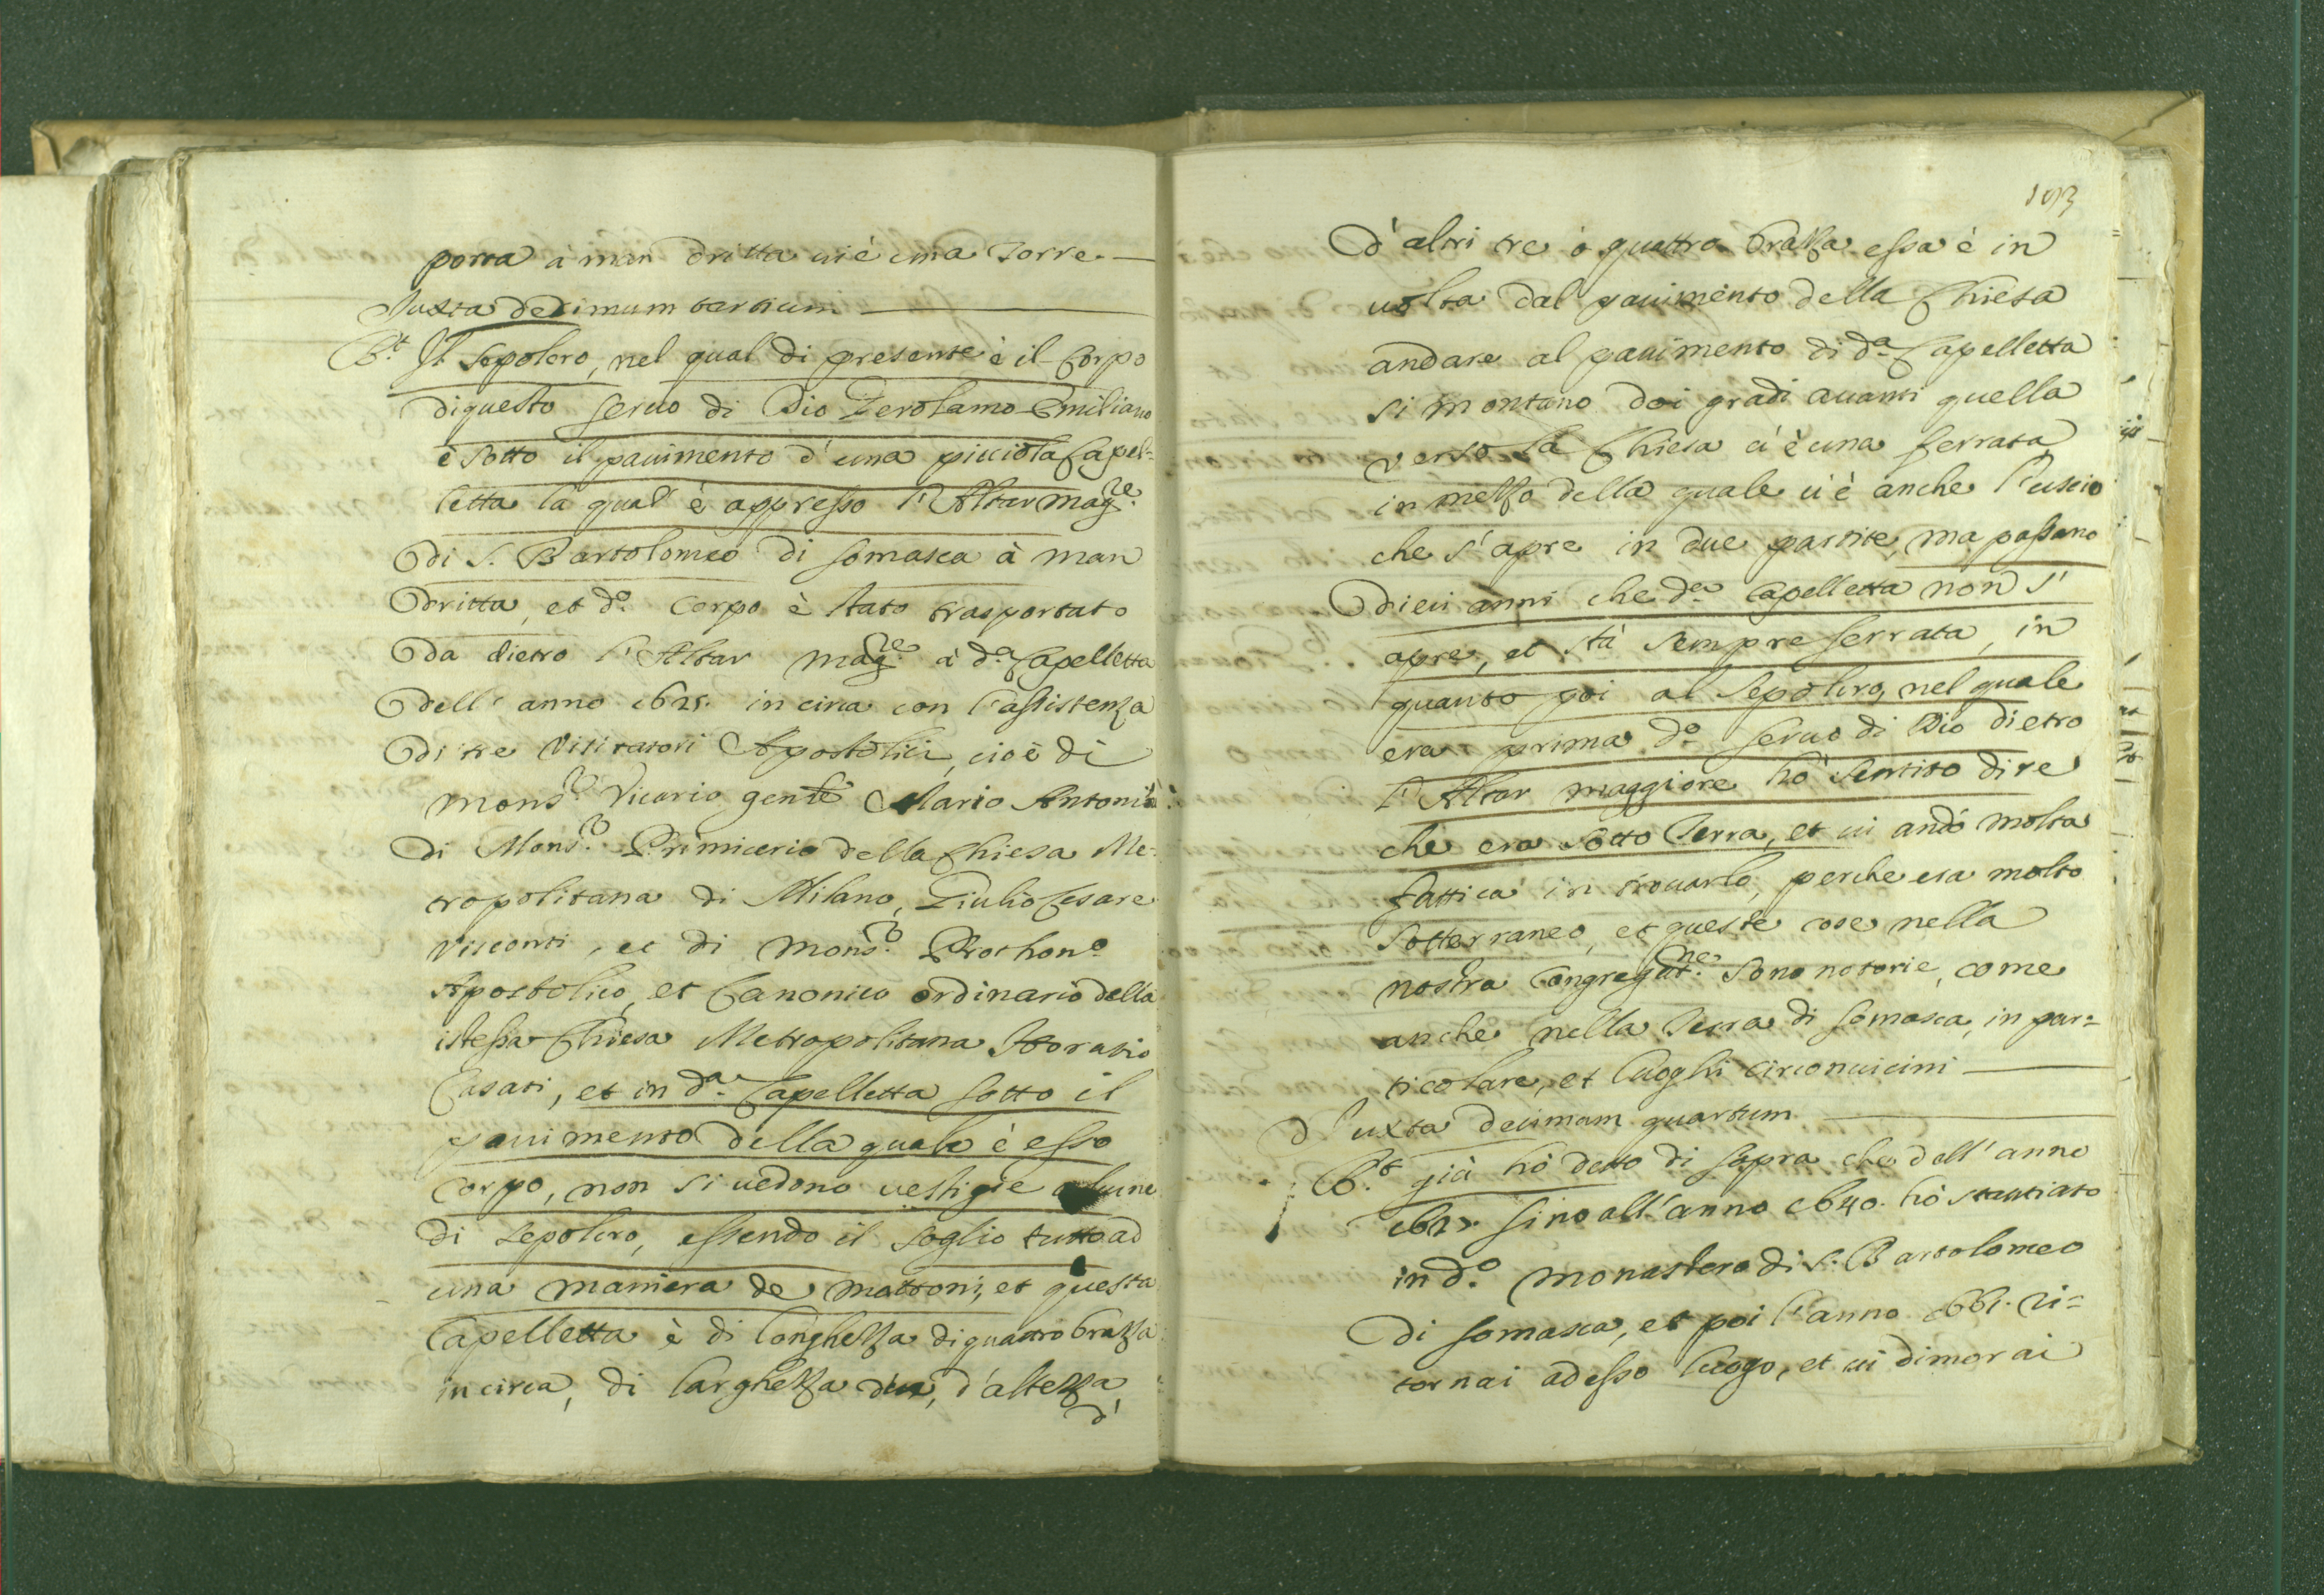 porta à man dritta ui è una Torre.
Iuxta decimum tertium
R.t Il Sepolcro, nel qual di presente è il Corpo
di questo seruo di Dio Gerolamo Emiliano
è sotto il pauimento d'una picciola Capel-
letta la qual è appresso l'Altar mag.re
di S. Bartolomeo di Somasca à man
dritta, et d.o corpo è stato trasportato
da dietro l'Altar mag.re à d.a Capelletta
dell'anno 1625. in circa con l'assistenza
di tre Visitatori Apostolici, cioè di
mons.r Vicario gen.le Mario Antonino
di Mons.r Primicerio della Chiesa Me-
tropolitana di Milano, Giulio Cesare
Visconti, et di Mons.r Prothon.o
Apostolico, et Canonico ordinario della
istessa Chiesa Metropolitana Horatio
Casati, et in d.a Capelletta sotto il
pauimento della quale è esso
Corpo, non si uedono uestigie alcune
di sepolcro, essendo il soglio tutto ad
una maniera de mattoni, et questa
Capelletta è di longhezza di quattro brazza
in circa, di larghezza d'un, d'altezza
d'
193
d'altri tre ò quattro brazza essa è in
uolta dal pauimento della Chiesa
andare al pauimento di d.a Capelletta
si montano doi gradi auanti quella
verso la Chiesa ui è una ferrata
in mezzo della quale ui è anche l'uscio
che s'apre in due partite, ma passano
dieci anni che d.a Capelletta non s'
apre, et stà sempre serrata, in
quanto poi al Sepolcro, nel quale
era prima d.o seruo di Dio dietro
l'Altar maggiore hò sentito dire
che era sotto Terra, et ui andò molta
fattica in trouarlo, perche era molto
sotterraneo, et queste cose nella
nostra Congregat.ne sono notorie, come
anche nella Terra di Somasca, in par-
ticolare, et luoghi circonuicini
Iuxta decimum quartum
R.t già hò detto di sopra che dell'anno
1625. sino all'anno 1640. hò stantiato
in d.o monastero di S. Bartolomeo
di Somasca, et poi l'anno 1661. ri-
tornai ad esso luogo, et ui dimorai